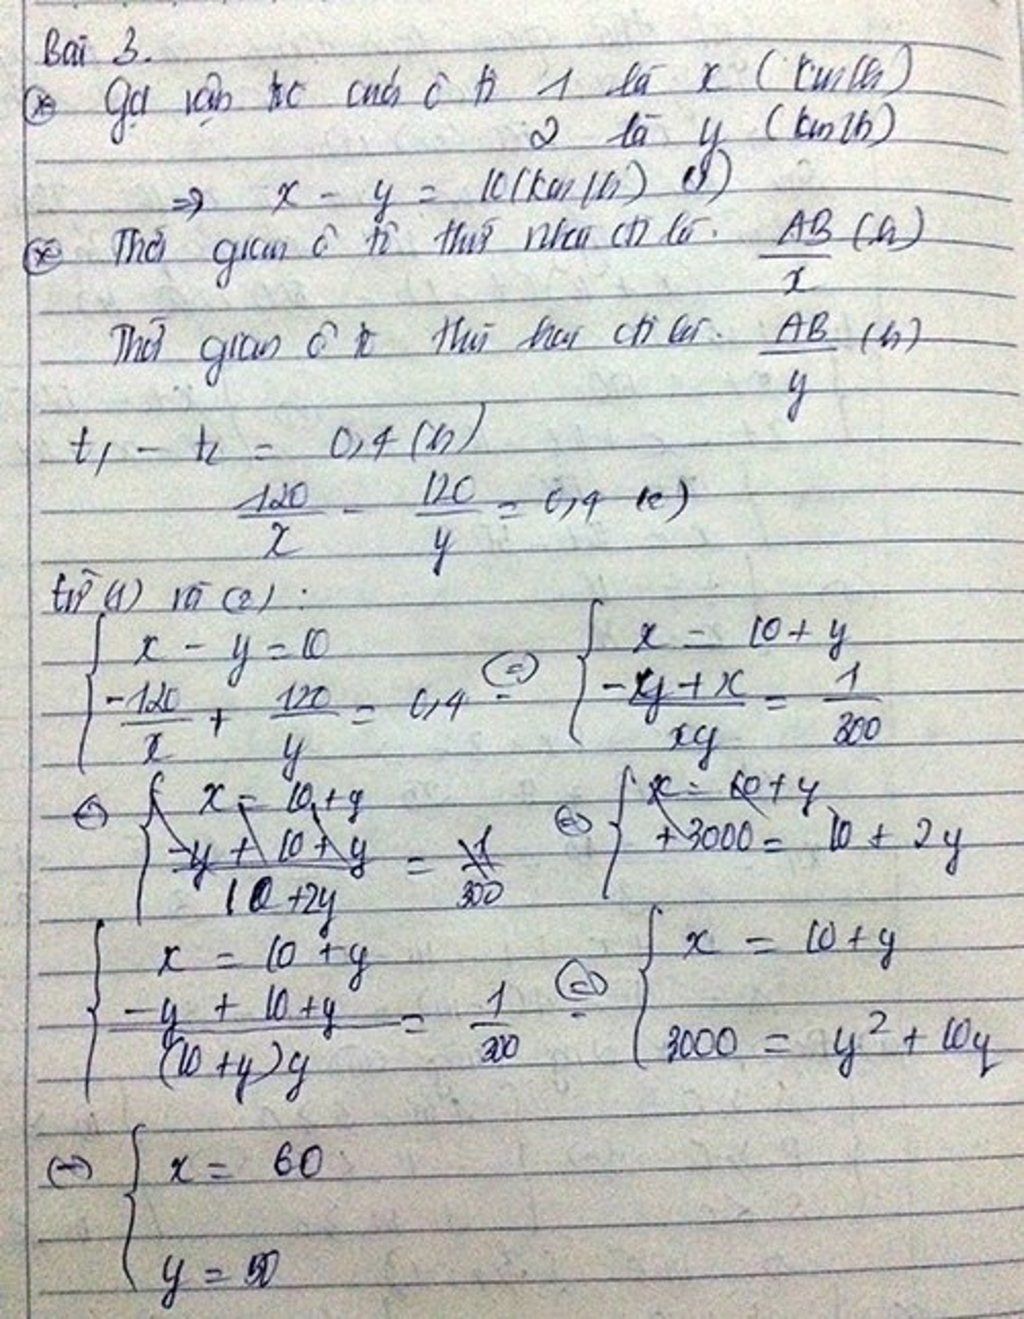 Bài 3.
* Gọi vận tốc của ô tô 1 là x (km/h)
2 là y (km/h)
=> x - y = 10 (km/h) (1)
* Thời gian ô tô thứ nhất đi là: AB/x (h)
Thời gian ô tô thứ hai đi là: AB/y (h)
t₁ - t₂ = 0,4 (h)
120/x - 120/y = 0,4 (2)
từ (1) và (2) :
{ x - y = 10 ; -120/x + 120/y = 0,4 <=> { x = 10 + y ; (-y + x)/xy = 1/300
<=> { x = 10 + y ; (-y + 10 + y)/(10 + 2y) = 1/300 <=> { x = 10 + y ; +3000 = 10 + 2y
{ x = 10 + y ; (-y + 10 + y)/((10 + y)y) = 1/300 <=> { x = 10 + y ; 3000 = y² + 10y
<=> { x = 60
y = 50